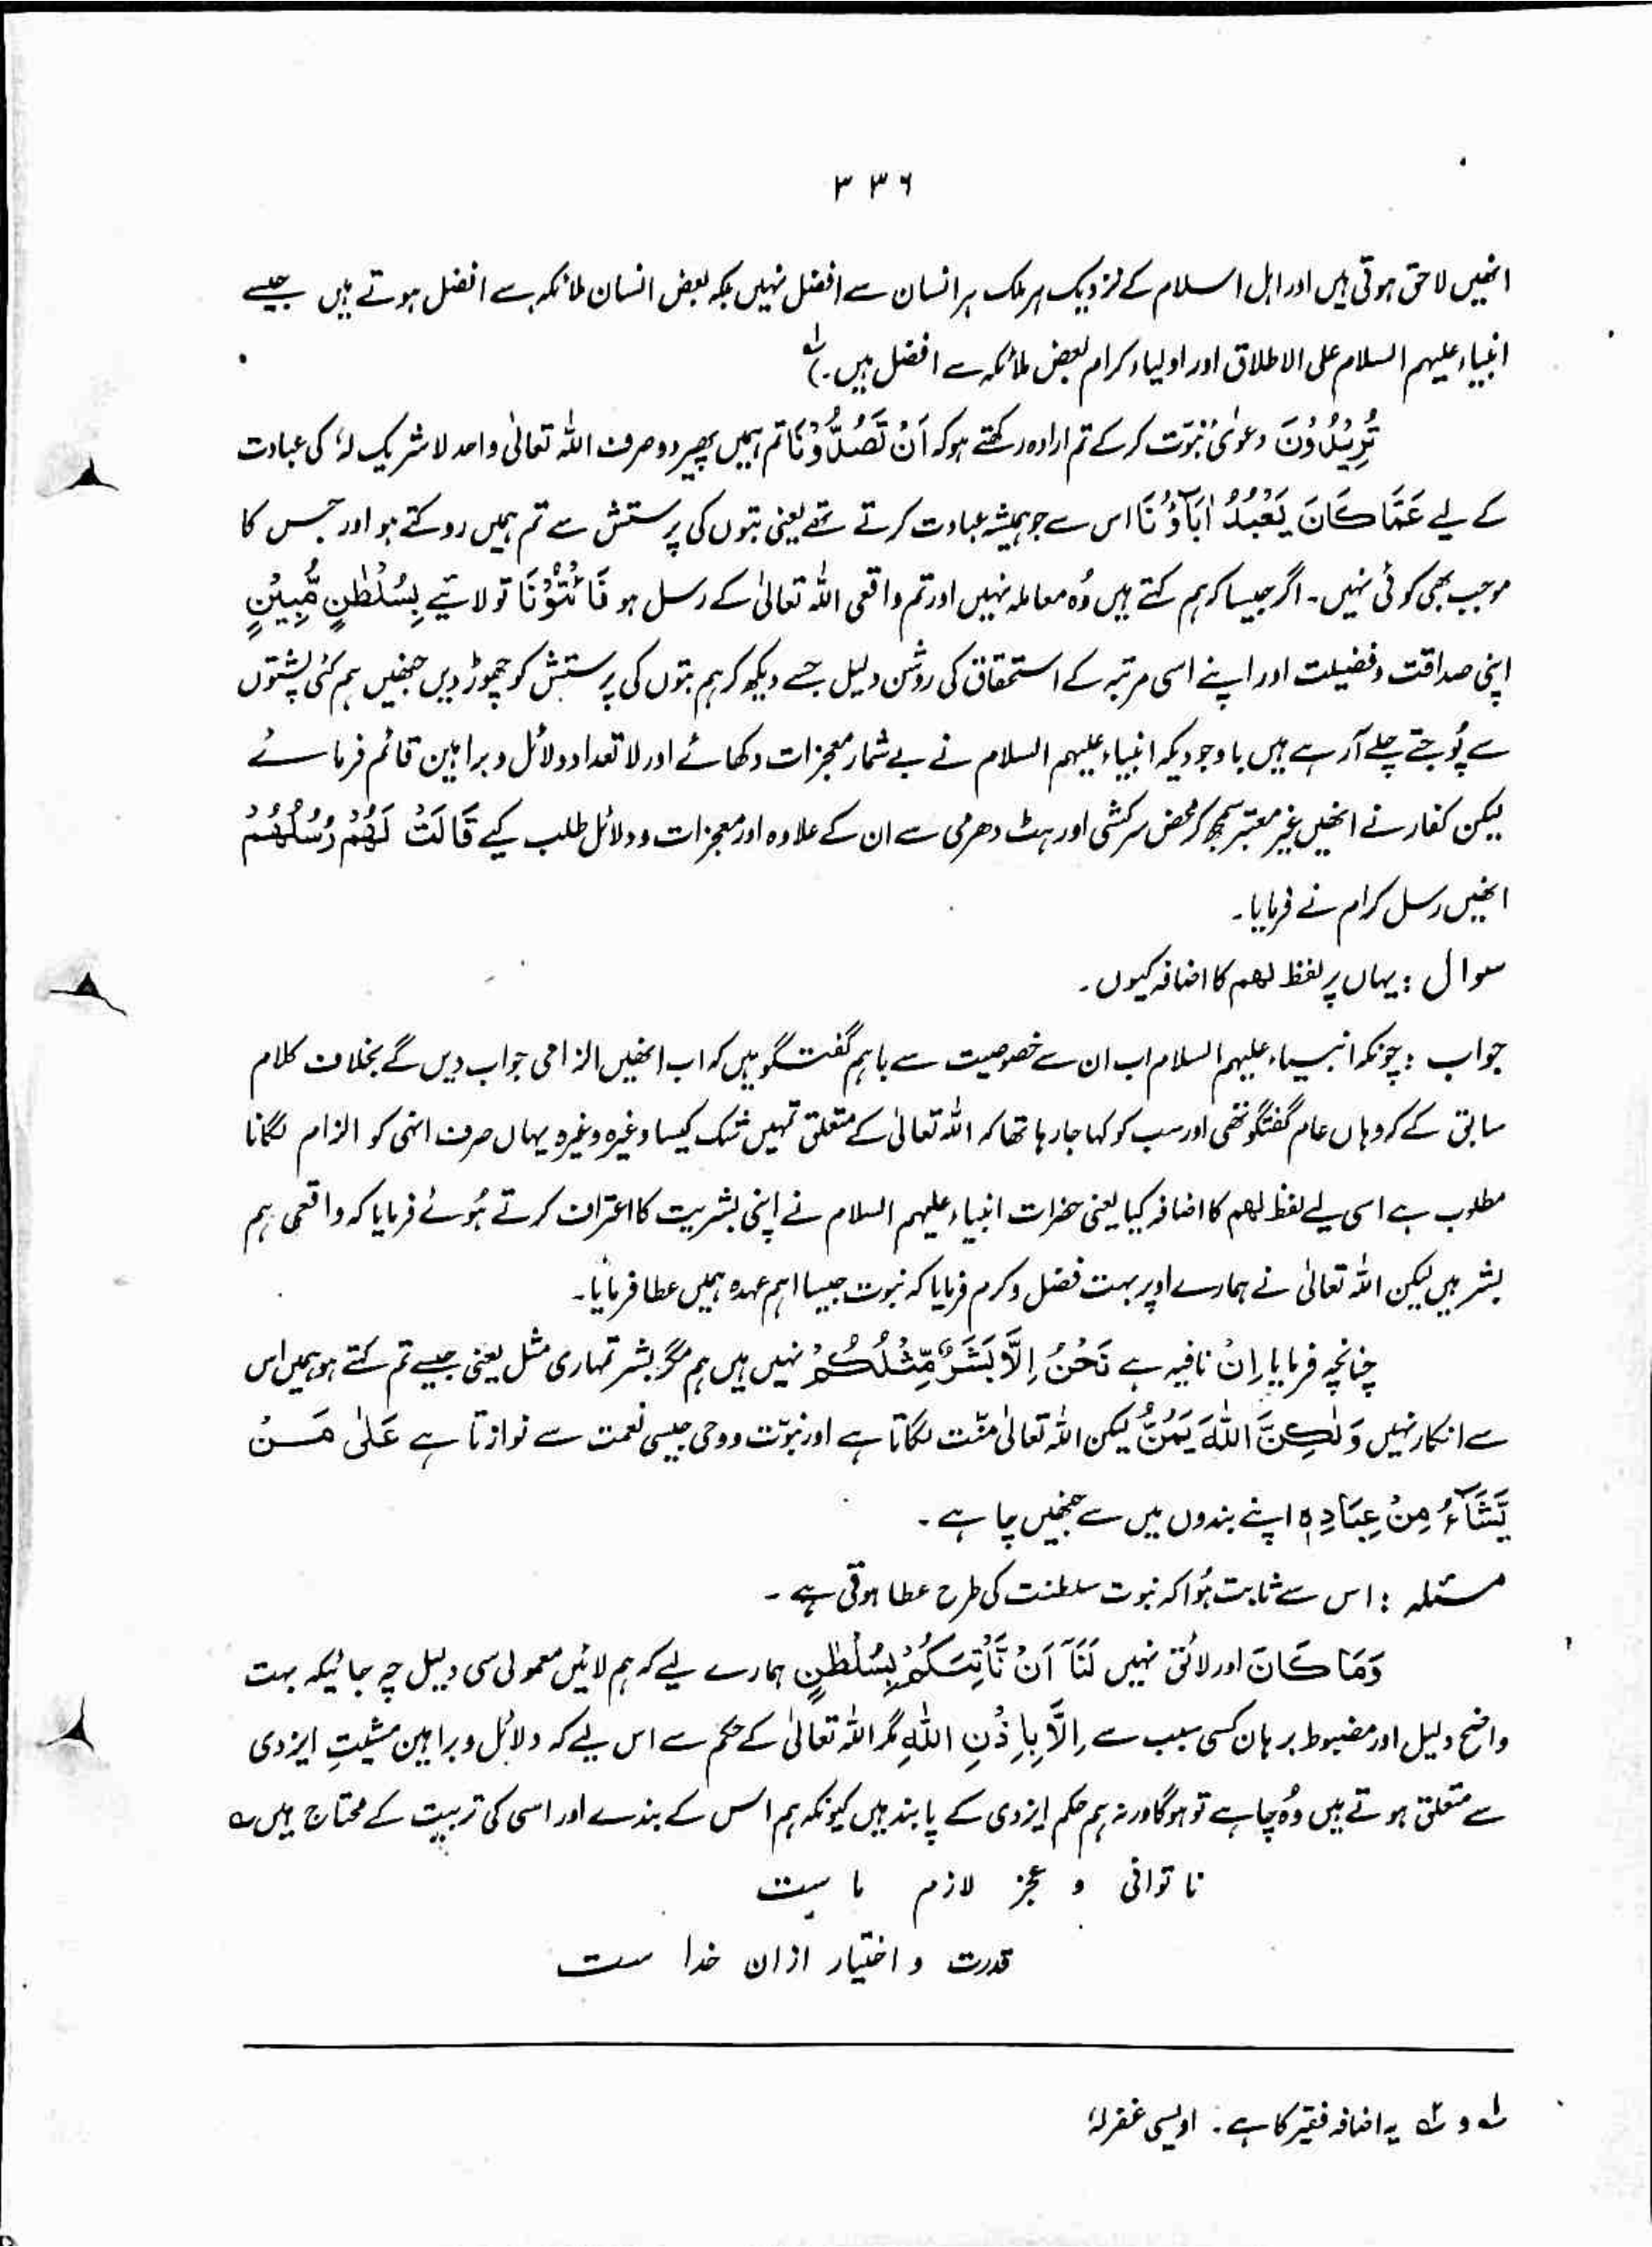 ۳۳۶
انھیں لاحق ہوتی ہیں اور اہل اسلام کے نزدیک ہر ملک ہر انسان سے افضل نہیں بلکہ بعض انسان ملائکہ سے افضل ہوتے ہیں جیسے
انبیاء علیہم السلام علی الاطلاق اور اولیاء کرام بعض ملائکہ سے افضل ہیں۔)
تُرِيْدُوْنَ دعوٰیٔ نبوّت کرکے تم ارادہ رکھتے ہو کہ اَنْ تَصُدُّوْنَا تم ہمیں پھیر دو صرف اللہ تعالیٰ واحد لا شریک لہٗ کی عبادت
کے لیے عَمَّا كَانَ يَعْبُدُ اٰبَآؤُنَا اس سے جو ہمیشہ عبادت کرتے تھے یعنی بتوں کی پرستش سے تم ہمیں روکتے ہو اور جس کا
موجب بھی کوئی نہیں۔ اگر جیسا کہ ہم کہتے ہیں وُہ معاملہ نہیں اور تم واقعی اللہ تعالیٰ کے رسل ہو فَأْتُوْنَا تو لائیے بِسُلْطٰنٍ مُّبِيْنٍ
اپنی صداقت و فضیلت اور اپنے اسی مرتبہ کے استحقاق کی روشن دلیل جسے دیکھ کر ہم بتوں کی پرستش کو چھوڑ دیں جنھیں ہم کئی پشتوں
سے پُوجتے چلے آرہے ہیں باوجودیکہ انبیاء علیہم السلام نے بے شمار معجزات دکھائے اور لا تعداد دلائل و براہین قائم فرمائے
لیکن کفار نے انھیں غیر معتبر سمجھ کر محض سرکشی اور ہٹ دھرمی سے ان کے علاوہ اور معجزات و دلائل طلب کیے قَالَتْ لَهُمْ رُسُلُهُمْ
انھیں رسل کرام نے فرمایا۔
سوال : یہاں پر لفظ لهم کا اضافہ کیوں۔
جواب : چونکہ انبیاء علیہم السلام اب ان سے خصوصیت سے باہم گفتگو ہیں کہ اب انھیں الزامی جواب دیں گے بخلاف کلام
سابق کے کہ وہاں عام گفتگو تھی اور سب کو کہا جا رہا تھا کہ اللہ تعالیٰ کے متعلق تمہیں شک کیسا وغیرہ وغیرہ یہاں صرف انہی کو الزام لگانا
مطلوب ہے اسی لیے لفظ لهم کا اضافہ کیا یعنی حضرات انبیاء علیہم السلام نے اپنی بشریت کا اعتراف کرتے ہُوئے فرمایا کہ واقعی ہم
بشر ہیں لیکن اللہ تعالیٰ نے ہمارے اوپر بہت فضل و کرم فرمایا کہ نبوت جیسا اہم عہدہ ہمیں عطا فرمایا۔
چنانچہ فرمایا اِنْ نافیہ ہے نَحْنُ اِلَّا بَشَرٌ مِّثْلُكُمْ نہیں ہیں ہم مگر بشر تمہاری مثل یعنی جیسے تم کہتے ہو ہمیں اس
سے انکار نہیں وَلٰكِنَّ اللّٰهَ يَمُنُّ لیکن اللہ تعالیٰ منّت لگاتا ہے اور نبوّت و وحی جیسی نعمت سے نوازتا ہے عَلٰى مَنْ
يَّشَآءُ مِنْ عِبَادِهٖ اپنے بندوں میں سے جنھیں چاہے۔
مسئلہ : اس سے ثابت ہُوا کہ نبوت سلطنت کی طرح عطا ہوتی ہے۔
وَمَا كَانَ اور لائق نہیں لَنَآ اَنْ نَّأْتِيَكُمْ بِسُلْطٰنٍ ہمارے لیے کہ ہم لائیں معمولی سی دلیل چہ جائیکہ بہت
واضح دلیل اور مضبوط برہان کسی سبب سے اِلَّا بِاِذْنِ اللّٰهِ مگر اللہ تعالیٰ کے حکم سے اس لیے کہ دلائل و براہین مشیتِ ایزدی
سے متعلق ہوتے ہیں وُہ چاہے تو ہوگا ورنہ ہم حکم ایزدی کے پابند ہیں کیونکہ ہم اس کے بندے اور اسی کی تربیت کے محتاج ہیں؎
ناتوانی و عجز لازم ماست
قدرت و اختیار ازان خداست
یہ اضافہ فقیر کا ہے۔ اویسی غفرلہٗ